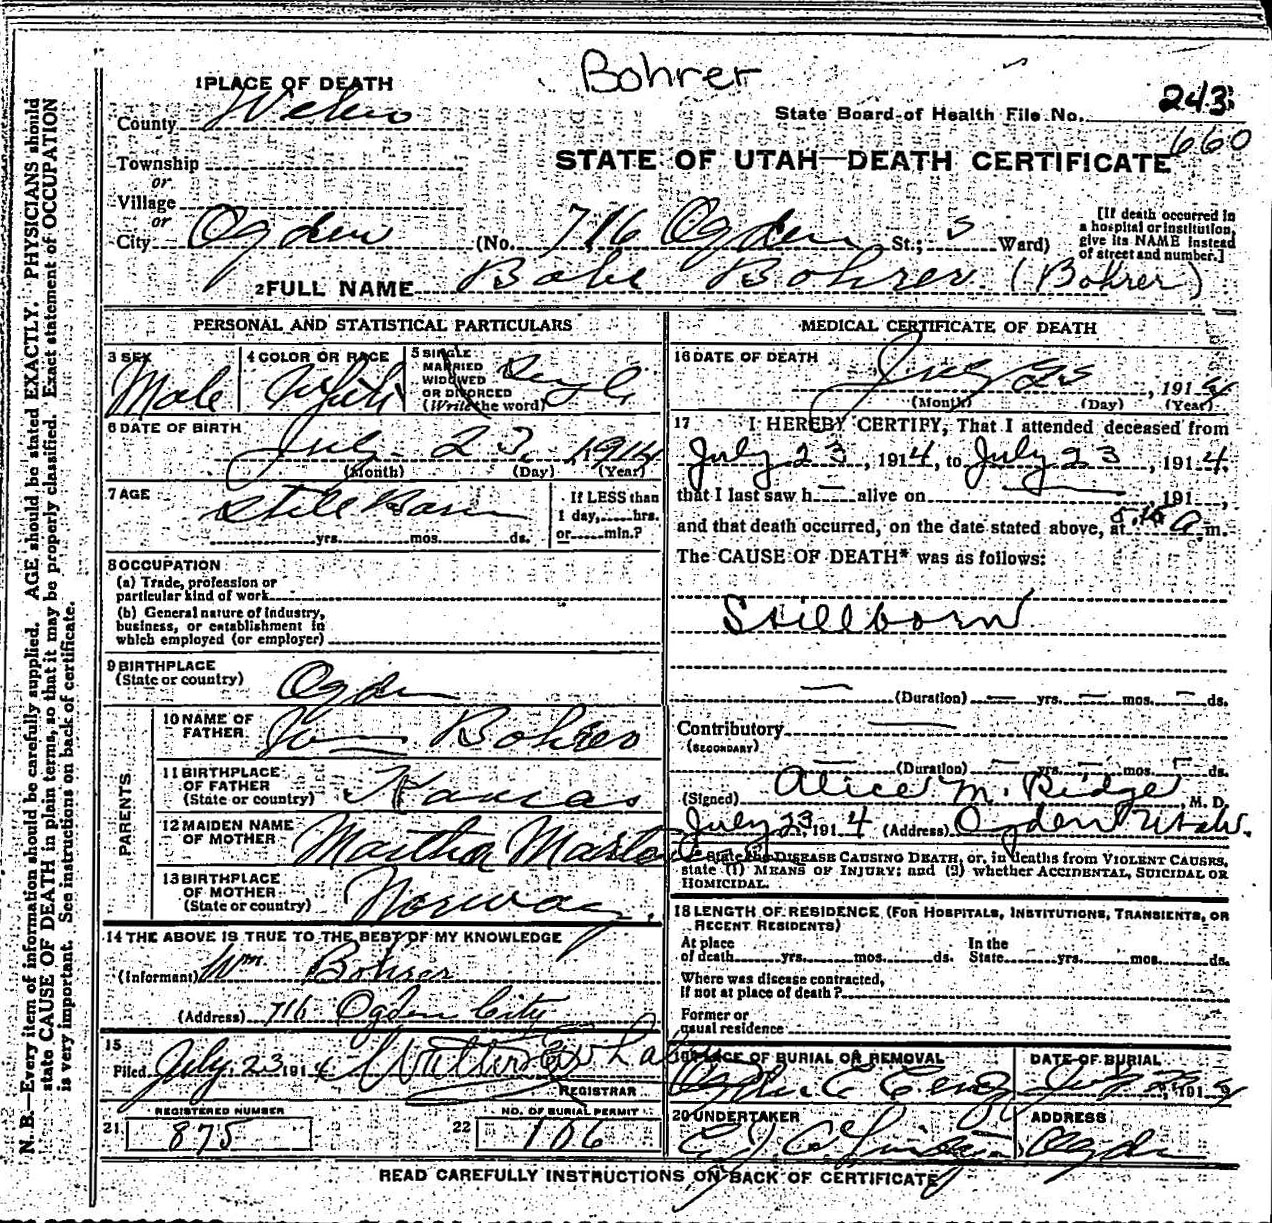 Bohrer
1 PLACE OF DEATH
County Weber
State Board of Health File No. 243
660
Township
or
Village
or
STATE OF UTAH—DEATH CERTIFICATE
City Ogden (No. 716 Ogden St.; 5 Ward)
[If death occurred in a hospital or institution, give its NAME instead of street and number.]
2 FULL NAME Babe Bohrer (Bohrer)
PERSONAL AND STATISTICAL PARTICULARS
3 SEX Male
4 COLOR OR RACE White
5 SINGLE MARRIED WIDOWED OR DIVORCED (Write the word) Single
6 DATE OF BIRTH July 23, 1914
(Month) (Day) (Year)
7 AGE Still Born
yrs. mos. ds.
If LESS than 1 day, hrs. or min.?
8 OCCUPATION
(a) Trade, profession or particular kind of work
(b) General nature of industry, business, or establishment in which employed (or employer)
9 BIRTHPLACE
(State or country) Ogden
PARENTS
10 NAME OF FATHER Bohrer
11 BIRTHPLACE OF FATHER (State or country) Kansas
12 MAIDEN NAME OF MOTHER Martha
13 BIRTHPLACE OF MOTHER (State or country) Norway.
14 THE ABOVE IS TRUE TO THE BEST OF MY KNOWLEDGE
(Informant) Wm Bohrer
(Address) 716 Ogden City
15 Filed July 23 1914
REGISTRAR
21 REGISTERED NUMBER 875
22 NO. OF BURIAL PERMIT 106
MEDICAL CERTIFICATE OF DEATH
16 DATE OF DEATH July 23, 1914
(Month) (Day) (Year)
17 I HEREBY CERTIFY, That I attended deceased from
July 23, 1914, to July 23, 1914.
that I last saw h— alive on —, 191 ,
and that death occurred, on the date stated above, at 5.15 a m.
The CAUSE OF DEATH* was as follows:
Stillborn
— (Duration) — yrs. — mos. — ds.
Contributory —
(SECONDARY)
— (Duration) — yrs. — mos. — ds.
(Signed) Alice M. Ridge, M. D.
July 23, 1914 (Address) Ogden Utah.
* State the DISEASE CAUSING DEATH, or, in deaths from VIOLENT CAUSES, state (1) MEANS OF INJURY; and (2) whether ACCIDENTAL, SUICIDAL OR HOMICIDAL.
18 LENGTH OF RESIDENCE (FOR HOSPITALS, INSTITUTIONS, TRANSIENTS, OR RECENT RESIDENTS)
At place of death yrs. mos. ds. In the State yrs. mos. ds.
Where was disease contracted, if not at place of death?
Former or usual residence
19 PLACE OF BURIAL OR REMOVAL
DATE OF BURIAL
191
20 UNDERTAKER
ADDRESS
Ogden
READ CAREFULLY INSTRUCTIONS ON BACK OF CERTIFICATE
N. B.—Every item of information should be carefully supplied. AGE should be stated EXACTLY. PHYSICIANS should
state CAUSE OF DEATH in plain terms, so that it may be properly classified. Exact statement of OCCUPATION
is very important. See instructions on back of certificate.